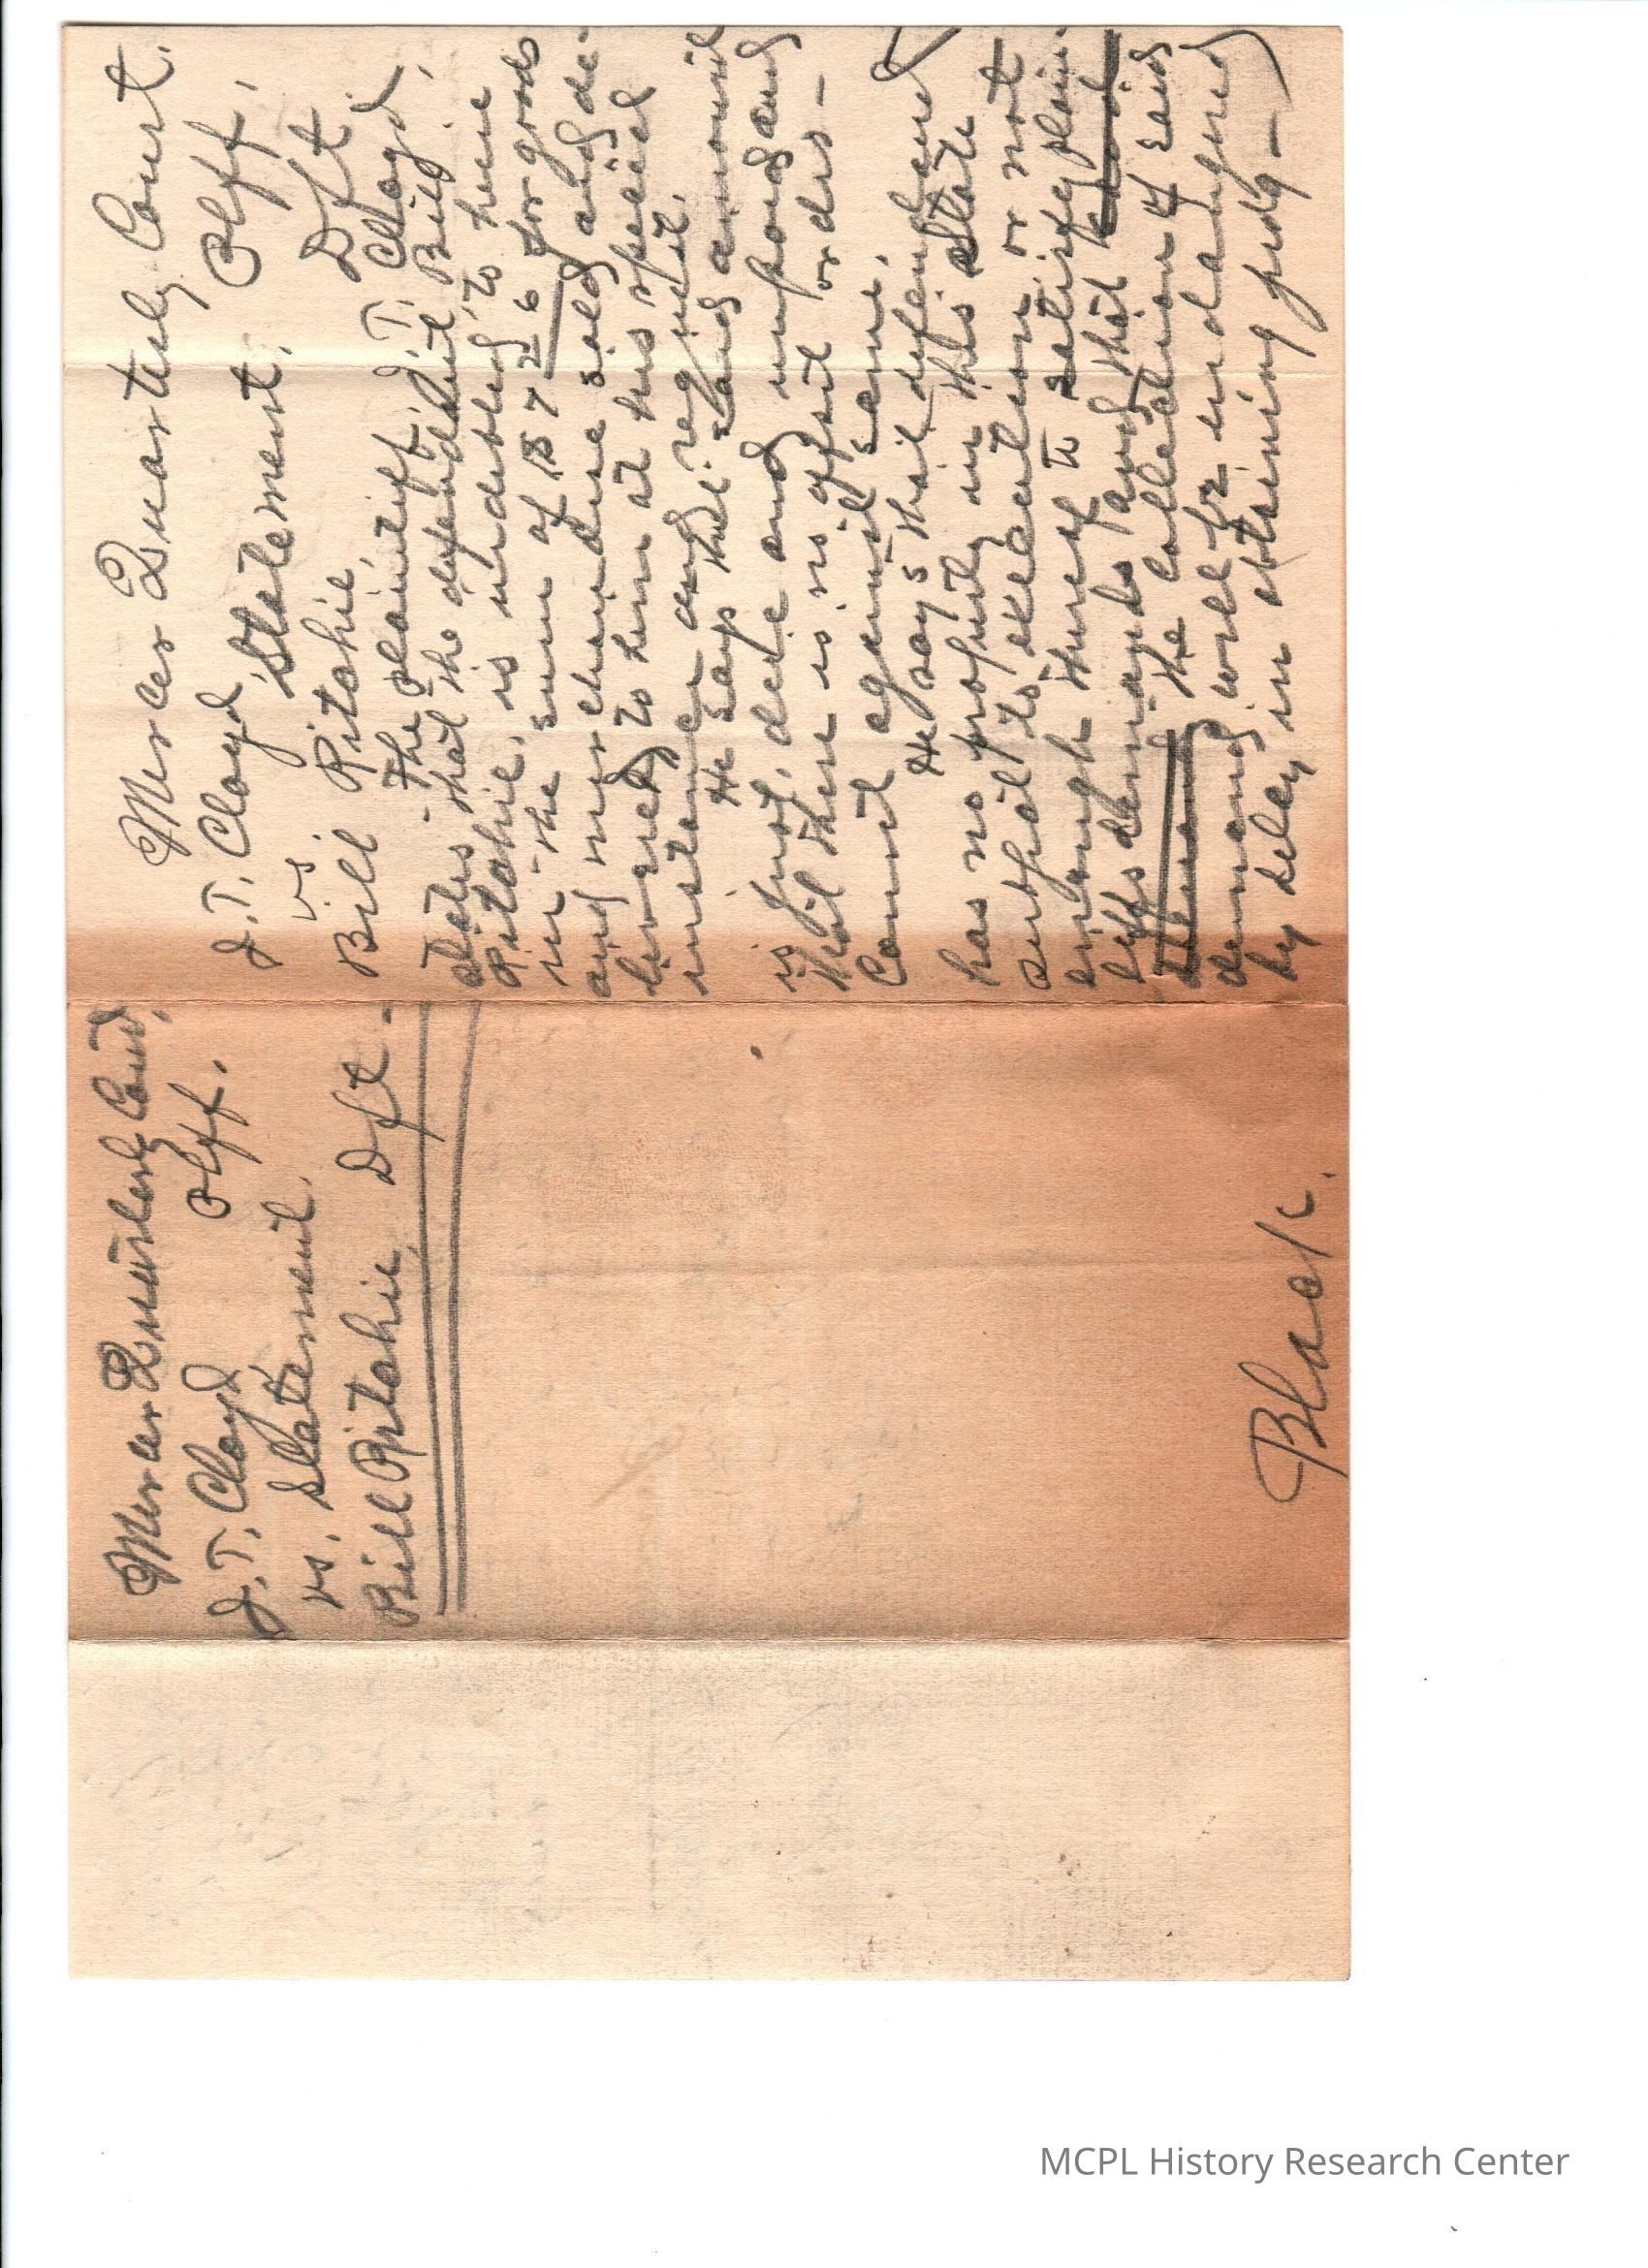 Mercer Quarterly Court.
J. T. Cloyd Plff.
vs. Statement.
Bill Ritchie, Dft.
The plaintiff J. T. Cloyd,
states that the defendant, Bill
Ritchie, is indebted, to him
in the sum of for goods
and merchandise sold and de-
livered to him at his special
instance and request.
He says that said amount
is just, due and unpaid and
that there is no offset or dis-
count against same.
He says that defendant
has no property in this state
subject to execution, or not
enough thereof to satisfy plain-
tiffs demands and that
the collection of said
demand will be endangered
by delay in obtaining judg-
Mercer Quarterly Court,
J. T. Cloyd Plff.
vs. Statement.
Bill Ritchie, Dft -
Black.
MCPL History Research Center